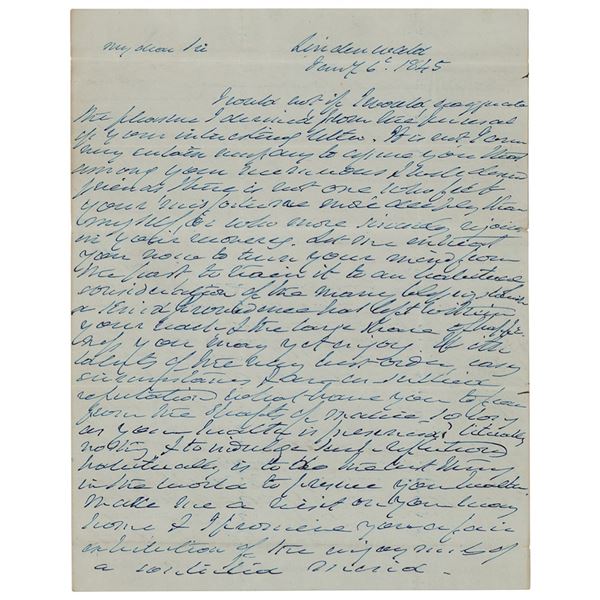 My dear Sir Lindenwald
Jany 6th 1845
I could not if I would, exaggerate
the pleasure I derived from the perusal
of your interesting letter. It is not I am
very certain necessary to assure you that
among your numerous & truly devoted
friends there is not one who felt
your misfortune more deeply than
myself or who more sincerely rejoices
in your recovery. Let me entreat
you now to turn your mind from
the past to train it to an habitual
consideration of the many blessings which
a kind providence has left within
your reach & the large share of happi-
ness you may yet enjoy. With
talents of the very first order, easy
circumstances & an
reputation what have you to fear
from the shafts of malice so long
as your health is preserved? literally
nothing, & to indulge
in the world to preserve your health.
Make me a visit on your way
home & I promise you a fair
exhibition of the enjoyments of
a contented mind.